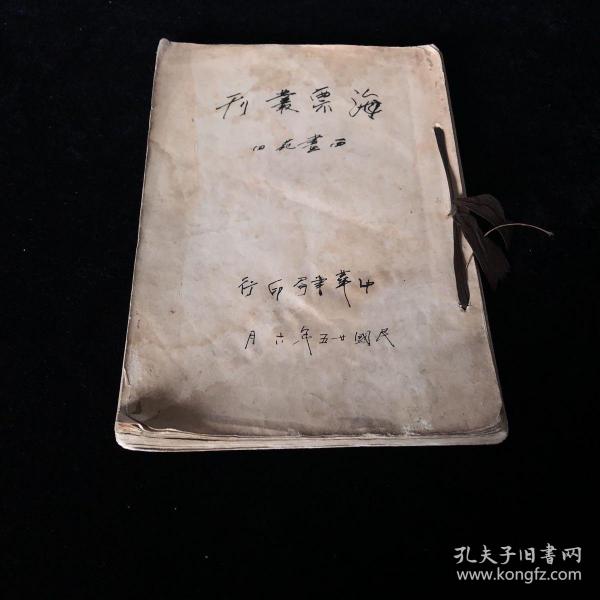 海粟叢刊
西畫苑四
中華書局印行
民國廿五年六月
孔夫子旧書网
www.kongfz.com